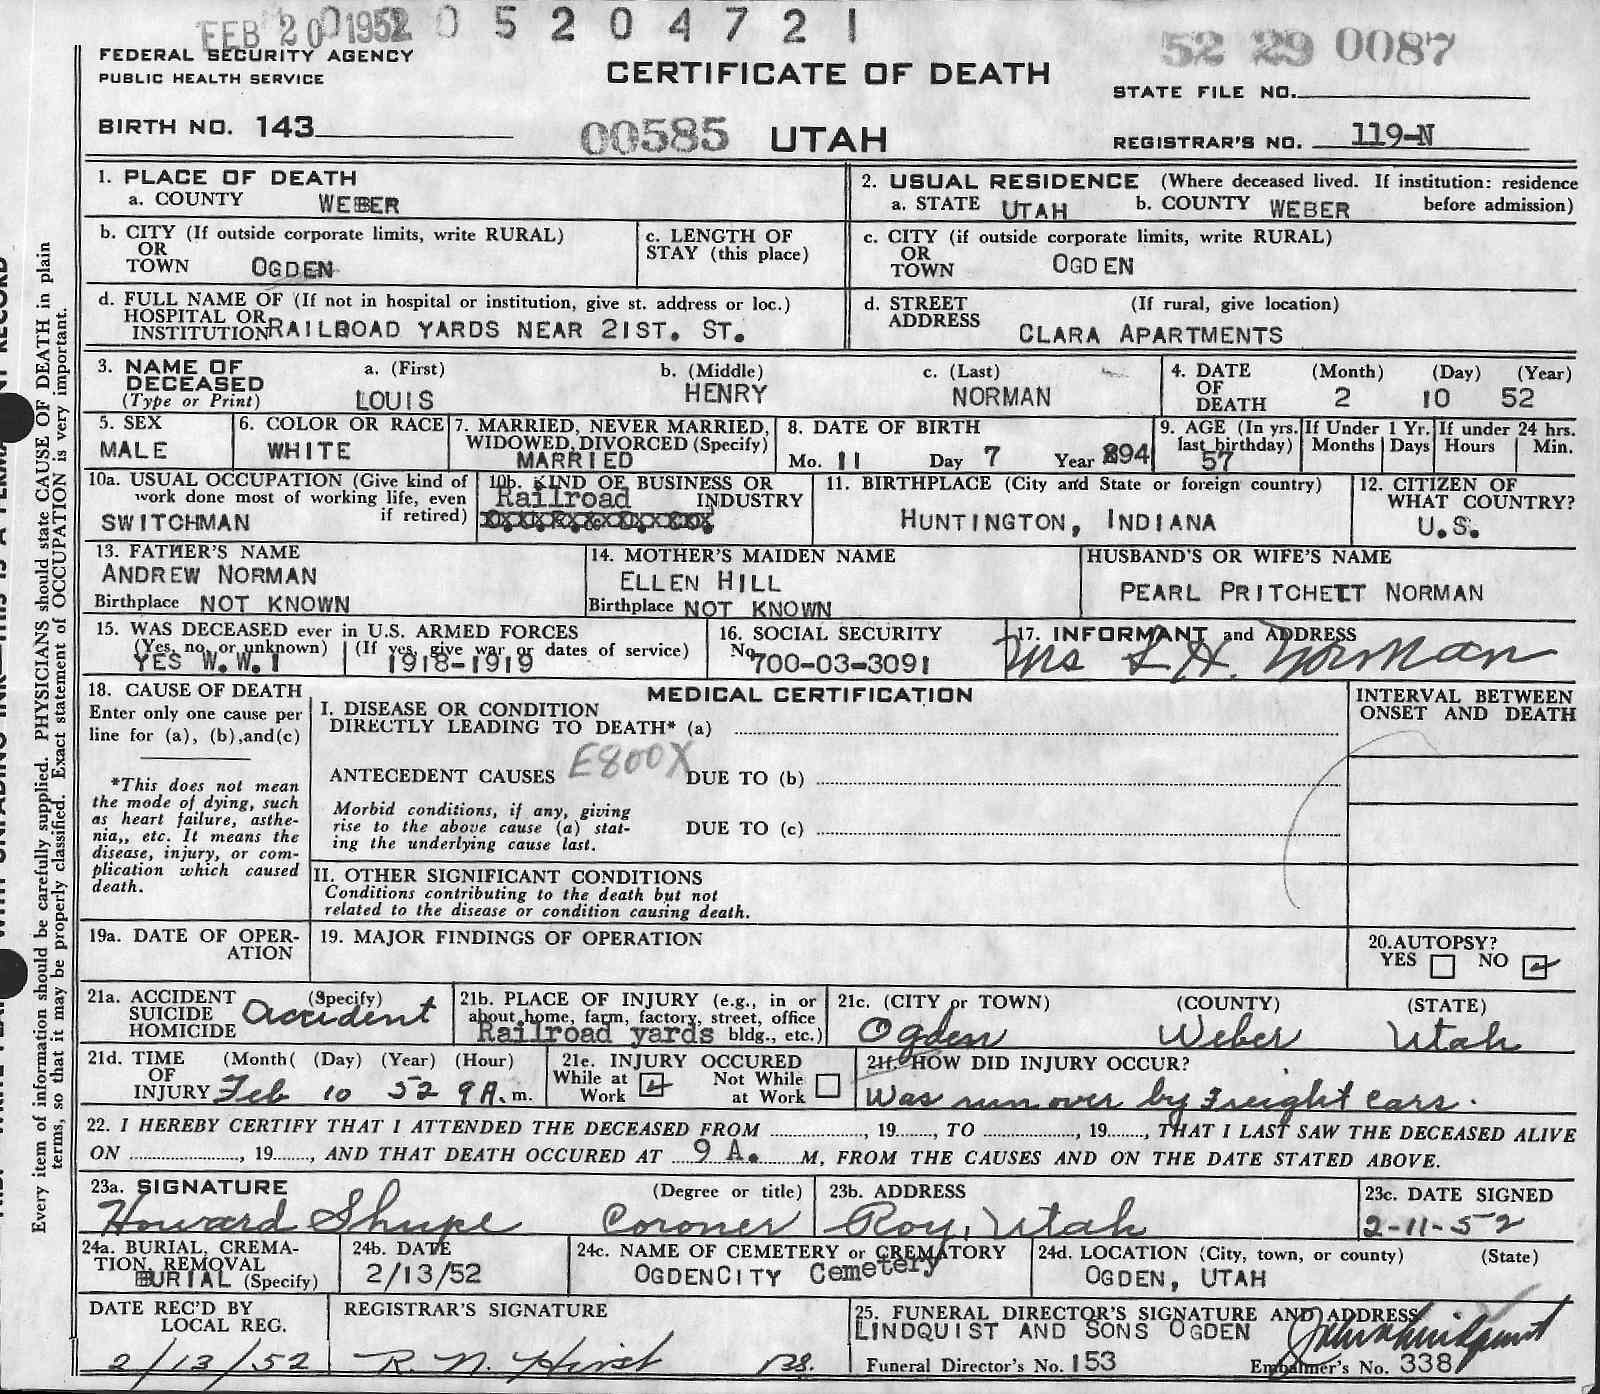 FEB 20 1952 0 5 2 0 4 7 2 1
52 29 0087
FEDERAL SECURITY AGENCY
PUBLIC HEALTH SERVICE
CERTIFICATE OF DEATH
STATE FILE NO.
BIRTH NO. 143
00585 UTAH
REGISTRAR'S NO. 119-N
1. PLACE OF DEATH
a. COUNTY WEBER
2. USUAL RESIDENCE (Where deceased lived. If institution: residence
a. STATE UTAH b. COUNTY WEBER before admission)
b. CITY (If outside corporate limits, write RURAL)
OR
TOWN OGDEN
c. LENGTH OF
STAY (this place)
c. CITY (if outside corporate limits, write RURAL)
OR
TOWN OGDEN
d. FULL NAME OF (If not in hospital or institution, give st. address or loc.)
HOSPITAL OR
INSTITUTION RAILROAD YARDS NEAR 21ST. ST.
d. STREET (If rural, give location)
ADDRESS
CLARA APARTMENTS
3. NAME OF a. (First) b. (Middle) c. (Last)
DECEASED
(Type or Print) LOUIS HENRY NORMAN
4. DATE (Month) (Day) (Year)
OF
DEATH 2 10 52
5. SEX
MALE
6. COLOR OR RACE
WHITE
7. MARRIED, NEVER MARRIED,
WIDOWED, DIVORCED (Specify)
MARRIED
8. DATE OF BIRTH
Mo. 11 Day 7 Year 894
9. AGE (In yrs.
last birthday)
57
If Under 1 Yr.
Months Days
If under 24 hrs.
Hours Min.
10a. USUAL OCCUPATION (Give kind of
work done most of working life, even
if retired)
SWITCHMAN
10b. KIND OF BUSINESS OR
Railroad INDUSTRY
11. BIRTHPLACE (City and State or foreign country)
HUNTINGTON, INDIANA
12. CITIZEN OF
WHAT COUNTRY?
U.S.
13. FATHER'S NAME
ANDREW NORMAN
Birthplace NOT KNOWN
14. MOTHER'S MAIDEN NAME
ELLEN HILL
Birthplace NOT KNOWN
HUSBAND'S OR WIFE'S NAME
PEARL PRITCHETT NORMAN
15. WAS DECEASED ever in U.S. ARMED FORCES
(Yes, no, or unknown) (If yes, give war or dates of service)
YES W.W.I 1918-1919
16. SOCIAL SECURITY
No. 700-03-3091
17. INFORMANT and ADDRESS
Mrs L H. Norman
18. CAUSE OF DEATH
Enter only one cause per
line for (a), (b), and (c)
*This does not mean
the mode of dying, such
as heart failure, asthe-
nia,, etc. It means the
disease, injury, or com-
plication which caused
death.
MEDICAL CERTIFICATION
I. DISEASE OR CONDITION
DIRECTLY LEADING TO DEATH* (a)
ANTECEDENT CAUSES E800X DUE TO (b)
Morbid conditions, if any, giving
rise to the above cause (a) stat-
ing the underlying cause last.
DUE TO (c)
II. OTHER SIGNIFICANT CONDITIONS
Conditions contributing to the death but not
related to the disease or condition causing death.
INTERVAL BETWEEN
ONSET AND DEATH
19a. DATE OF OPER-
ATION
19. MAJOR FINDINGS OF OPERATION
20. AUTOPSY?
YES NO
21a. ACCIDENT (Specify)
SUICIDE
HOMICIDE
Accident
21b. PLACE OF INJURY (e.g., in or
about home, farm, factory, street, office
Railroad yards bldg., etc.)
21c. (CITY or TOWN) (COUNTY) (STATE)
Ogden Weber Utah
21d. TIME (Month( (Day) (Year) (Hour)
OF
INJURY Feb 10 52 9 A. m.
21e. INJURY OCCURED
While at Not While
Work at Work
21f. HOW DID INJURY OCCUR?
Was run over by Freight cars.
22. I HEREBY CERTIFY THAT I ATTENDED THE DECEASED FROM ..............., 19......, TO ..............., 19......, THAT I LAST SAW THE DECEASED ALIVE
ON ..............., 19......, AND THAT DEATH OCCURED AT 9 A. M, FROM THE CAUSES AND ON THE DATE STATED ABOVE.
23a. SIGNATURE (Degree or title)
Howard Shupe Coroner
23b. ADDRESS
Roy, Utah
23c. DATE SIGNED
2-11-52
24a. BURIAL, CREMA-
TION, REMOVAL
BURIAL (Specify)
24b. DATE
2/13/52
24c. NAME OF CEMETERY or CREMATORY
OGDENCITY Cemetery
24d. LOCATION (City, town, or county) (State)
OGDEN, UTAH
DATE REC'D BY
LOCAL REG.
2/13/52
REGISTRAR'S SIGNATURE
R. N. Hirst
25. FUNERAL DIRECTOR'S SIGNATURE AND ADDRESS
LINDQUIST AND SONS OGDEN
Funeral Director's No. 153 Embalmer's No. 338
Every item of information should be carefully supplied. PHYSICIANS should state CAUSE OF DEATH in plain
terms, so that it may be properly classified. Exact statement of OCCUPATION is very important.